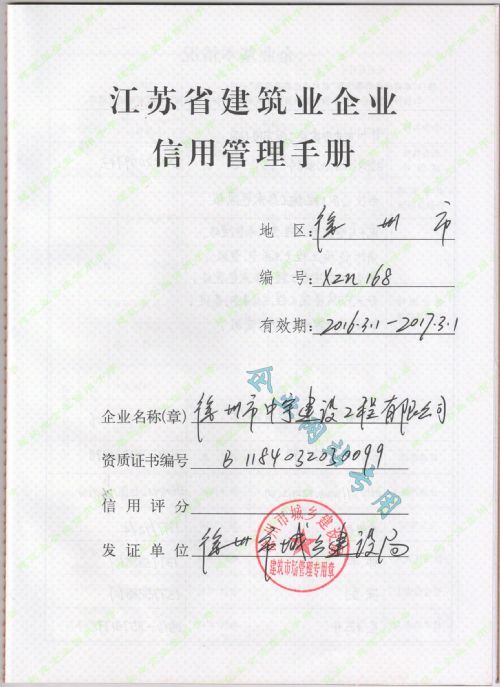 江苏省建筑业企业
信用管理手册
地 区: 徐 州 市
编 号: XZN168
有效期: 2016.3.1-2017.3.1
企业名称(章) 徐州市中宇建设工程有限公司
资质证书编号 B1184032030099
信 用 评 分
发 证 单 位 徐州市城乡建设局
徐州市城乡建设局
建筑市场管理专用章
网站专用